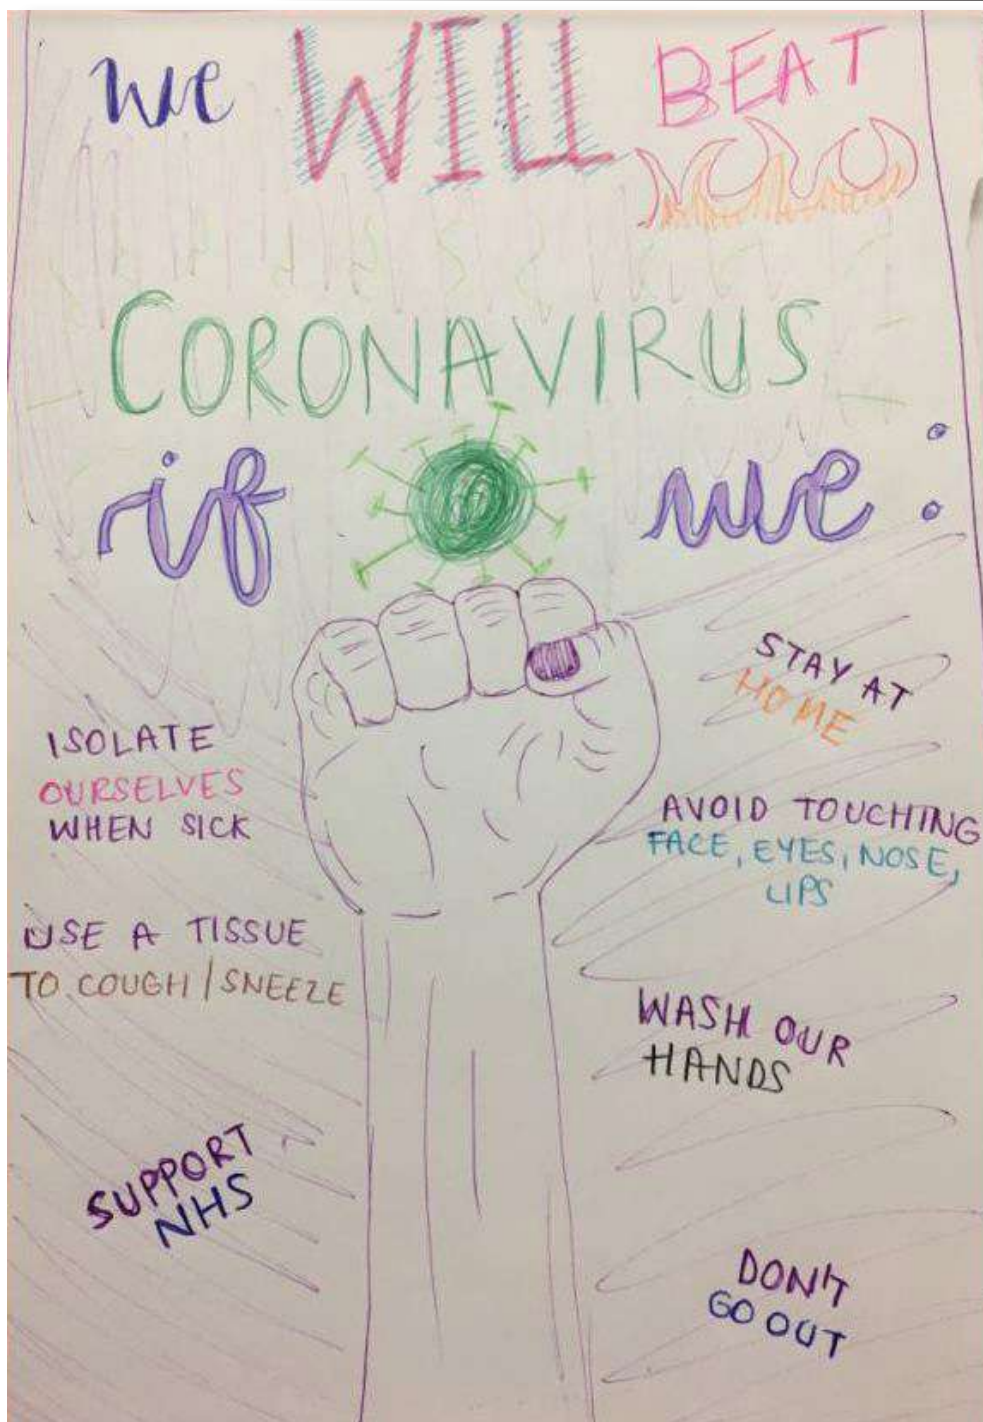 we WILL BEAT
CORONAVIRUS
if we:
ISOLATE
OURSELVES
WHEN SICK
USE A TISSUE
TO COUGH / SNEEZE
SUPPORT
NHS
STAY AT
HOME
AVOID TOUCHING
FACE, EYES, NOSE,
LIPS
WASH OUR
HANDS
DON'T
GO OUT